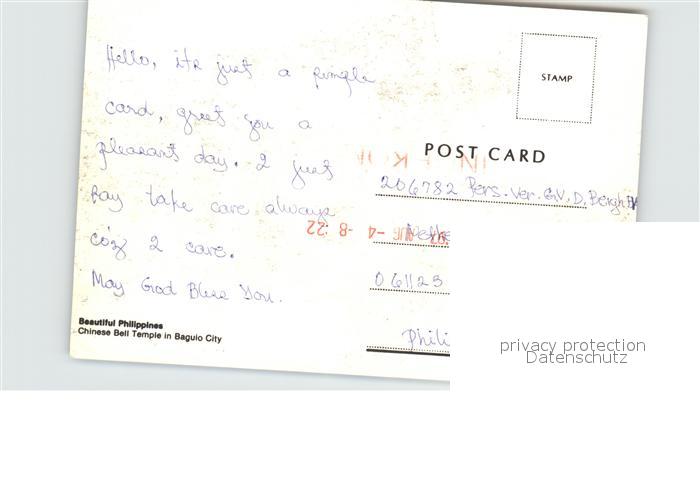 Hello, its just a simple
card, greet you a
pleasant day. I just
say take care always
co'z I care.
May God Bless You.
Beautiful Philippines
Chinese Bell Temple in Baguio City
STAMP
POST CARD
206782 Pers. Ver. G.V. D. Bergh
'97 AUG -4 -8:22
061123
Phili
privacy protection
Datenschutz